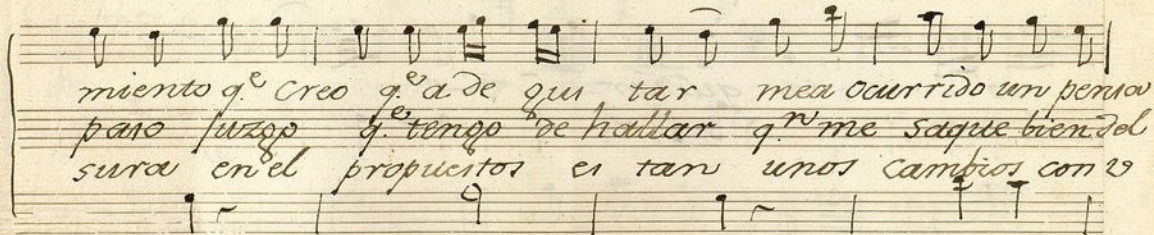 miento q.e creo q.e a de qui tar mea ocurrido un pensa
paso juzgo q.e tengo de hallar q.n me saque bien del
sura en el propuestos es tan unos cambios con v